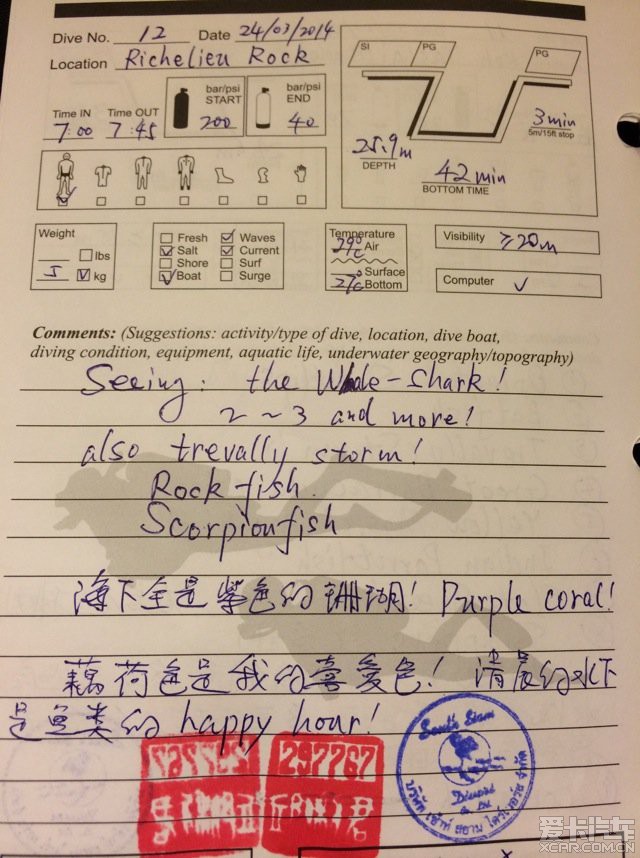 Dive No. 12 Date 24/03/2014
Location Richelieu Rock
Time IN Time OUT
7:00 7:45
bar/psi START 200
bar/psi END 40
SI PG PG
3 min
5m/15ft stop
25.9m
DEPTH
42 min
BOTTOM TIME
Weight
lbs
5 kg
Fresh Waves
Salt Current
Shore Surf
Boat Surge
Temperature
29°C Air
Surface
27°C Bottom
Visibility ≥20m
Computer
Comments: (Suggestions: activity/type of dive, location, dive boat,
diving condition, equipment, aquatic life, underwater geography/topography)
Seeing: the Whale-Shark!
2~3 and more!
also trevally storm!
Rock fish.
Scorpionfish
海下全是紫色的珊瑚! Purple coral!
藕荷色是我的喜爱色! 清晨的水下
是鱼类的 happy hour!
297787
South Siam
Co., Ltd.
爱卡汽车
XCAR.COM.CN